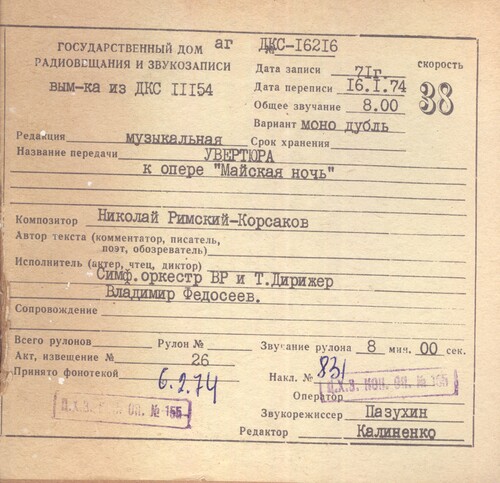 ГОСУДАРСТВЕННЫЙ ДОМ
РАДИОВЕЩАНИЯ И ЗВУКОЗАПИСИ
аг
вым-ка из ДКС III54
№ ДКС-I62I6
Дата записи 7Iг.
Дата переписи I6.I.74
Общее звучание 8.00
Вариант моно дубль
скорость
38
Редакция музыкальная Срок хранения
Название передачи УВЕРТЮРА
к опере "Майская ночь"
Композитор Николай Римский-Корсаков
Автор текста (комментатор, писатель,
поэт, обозреватель)
Исполнитель (актер, чтец, диктор)
Симф.оркестр ВР и Т.Дирижер
Владимир Федосеев.
Сопровождение
Всего рулонов Рулон № Звучание рулона 8 мин. 00 сек.
Акт, извещение № 26
Принято фонотекой 6.2.74
Накл. № 831
Оператор
Ц.Х.З. КОН. ОП. № 155
Ц.Х.З. КОН. ОП. № 155
Звукорежиссер Пазухин
Редактор Калиненко